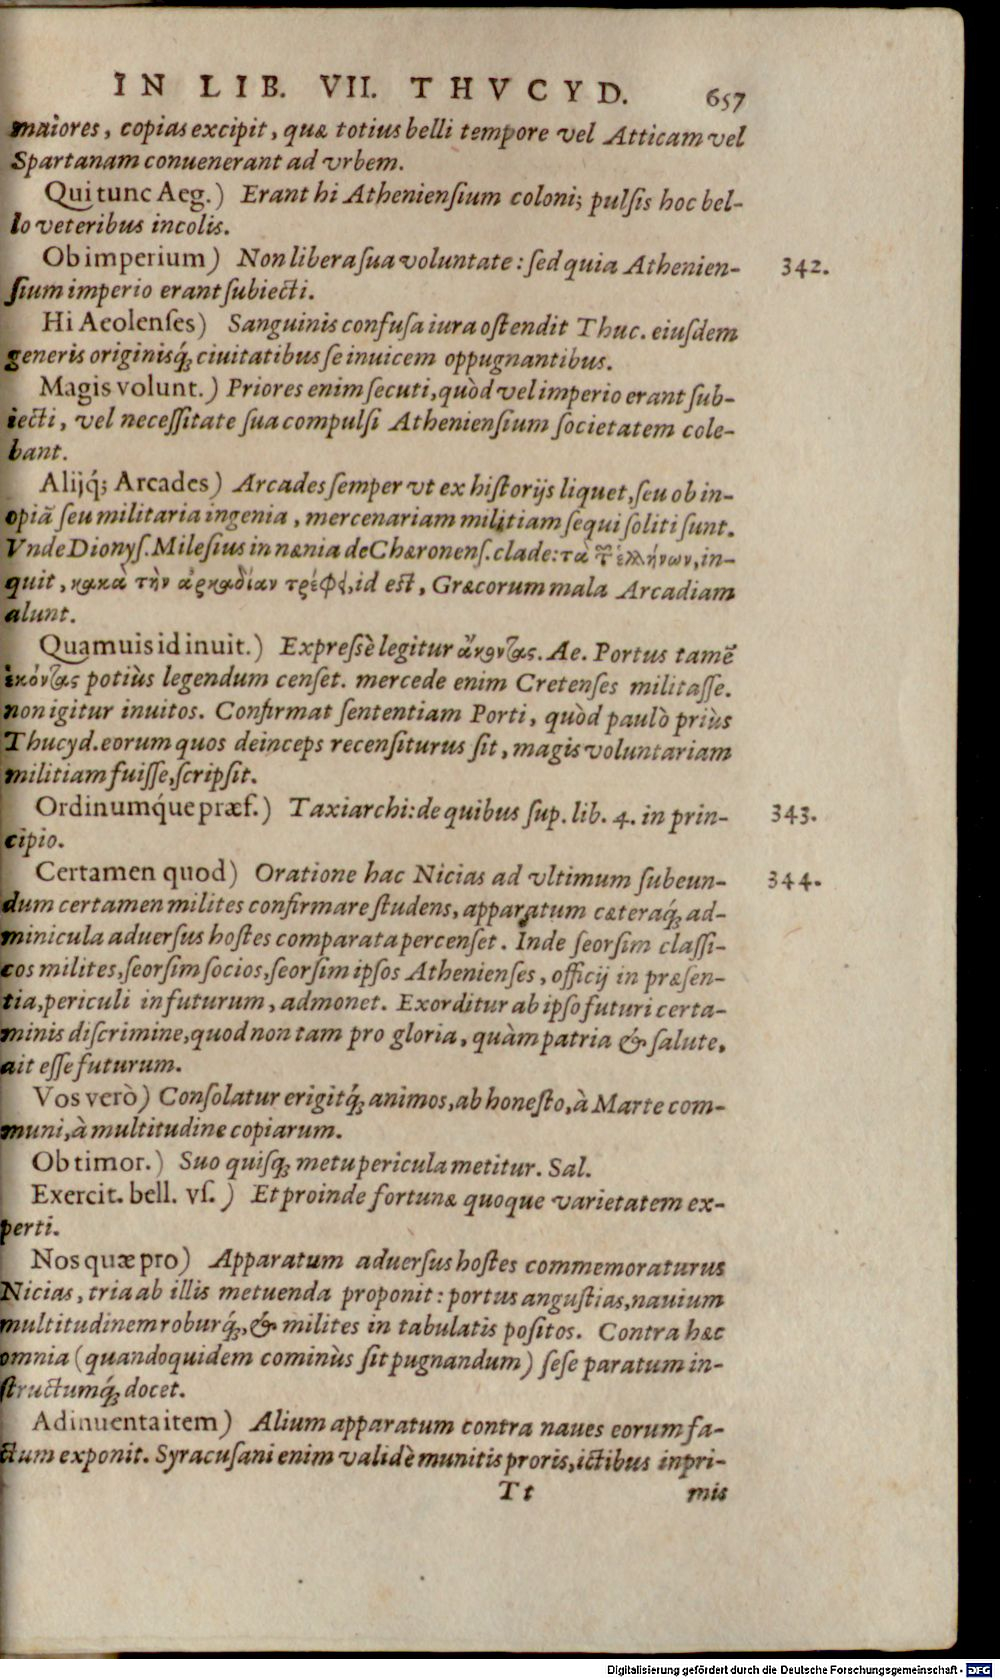 IN LIB. VII. THVCYD. 657
maiores, copias excipit, quæ totius belli tempore vel Atticam vel
Spartanam conuenerant ad vrbem.
Qui tunc Aeg.) Erant hi Athenienſium coloni; pulſis hoc bel-
lo veteribus incolis.
Ob imperium) Non libera ſua voluntate: ſed quia Athenien- 342.
ſium imperio erant ſubiecti.
Hi Aeolenſes) Sanguinis confuſa iura oſtendit Thuc. eiuſdem
generis originisq́; ciuitatibus ſe inuicem oppugnantibus.
Magis volunt.) Priores enim ſecuti, quòd vel imperio erant ſub-
iecti, vel neceſſitate ſua compulſi Athenienſium ſocietatem cole-
bant.
Alijq́; Arcades) Arcades ſemper vt ex hiſtorijs liquet, ſeu ob in-
opiã ſeu militaria ingenia, mercenariam militiam ſequi ſoliti ſunt.
Vnde Dionyſ. Mileſius in nænia de Chæronenſ. clade: τὰ τῶν ἑλλήνων, in-
quit, κακὰ τὴν ἀρκαδίαν τρέφει, id est, Græcorum mala Arcadiam
alunt.
Quamuis id inuit.) Expreſsè legitur ἄκοντας. Ae. Portus tamẽ
ἑκόντας potiùs legendum cenſet. mercede enim Cretenſes militaſſe.
non igitur inuitos. Confirmat ſententiam Porti, quòd paulò priùs
Thucyd. eorum quos deinceps recenſiturus ſit, magis voluntariam
militiam fuiſſe, ſcripſit.
Ordinumq́ue præf.) Taxiarchi: de quibus ſup. lib. 4. in prin- 343.
cipio.
Certamen quod) Oratione hac Nicias ad vltimum ſubeun- 344.
dum certamen milites confirmare ſtudens, apparatum cæteraq́; ad-
minicula aduerſus hoſtes comparata percenſet. Inde ſeorſim claſſi-
cos milites, ſeorſim ſocios, ſeorſim ipſos Athenienſes, officij in præſen-
tia, periculi in futurum, admonet. Exorditur ab ipſo futuri certa-
minis diſcrimine, quod non tam pro gloria, quàm patria & ſalute,
ait eſſe futurum.
Vos verò) Conſolatur erigitq́; animos, ab honeſto, à Marte com-
muni, à multitudine copiarum.
Ob timor.) Suo quiſq; metu pericula metitur. Sal.
Exercit. bell. vſ.) Et proinde fortunæ quoque varietatem ex-
perti.
Nos quæ pro) Apparatum aduerſus hoſtes commemoraturus
Nicias, tria ab illis metuenda proponit: portus anguſtias, nauium
multitudinem roburq́;, & milites in tabulatis poſitos. Contra hæc
omnia (quandoquidem cominùs ſit pugnandum) ſeſe paratum in-
ſtructumq́; docet.
Adinuenta item) Alium apparatum contra naues eorum fa-
ctum exponit. Syracuſani enim validè munitis proris, ictibus inpri-
Tt mis
Digitalisierung gefördert durch die Deutsche Forschungsgemeinschaft - DFG